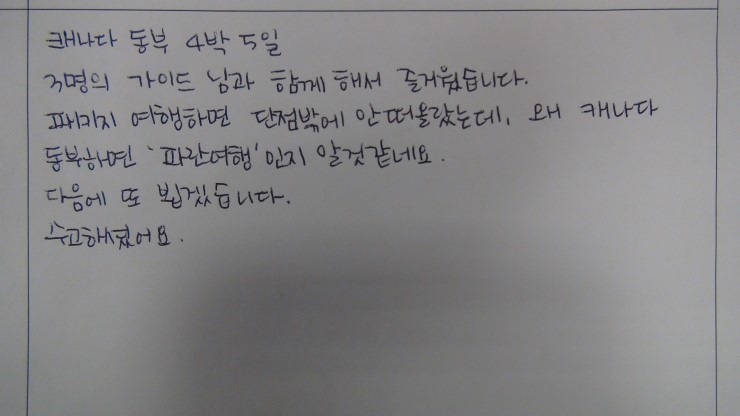 캐나다 동부 4박 5일
3명의 가이드 님과 함께 해서 즐거웠습니다.
패키지 여행하면 단점밖에 안떠올랐는데, 왜 캐나다
동부하면 '파란여행'인지 알것같네요.
다음에 또 뵙겠습니다.
수고하셨어요.